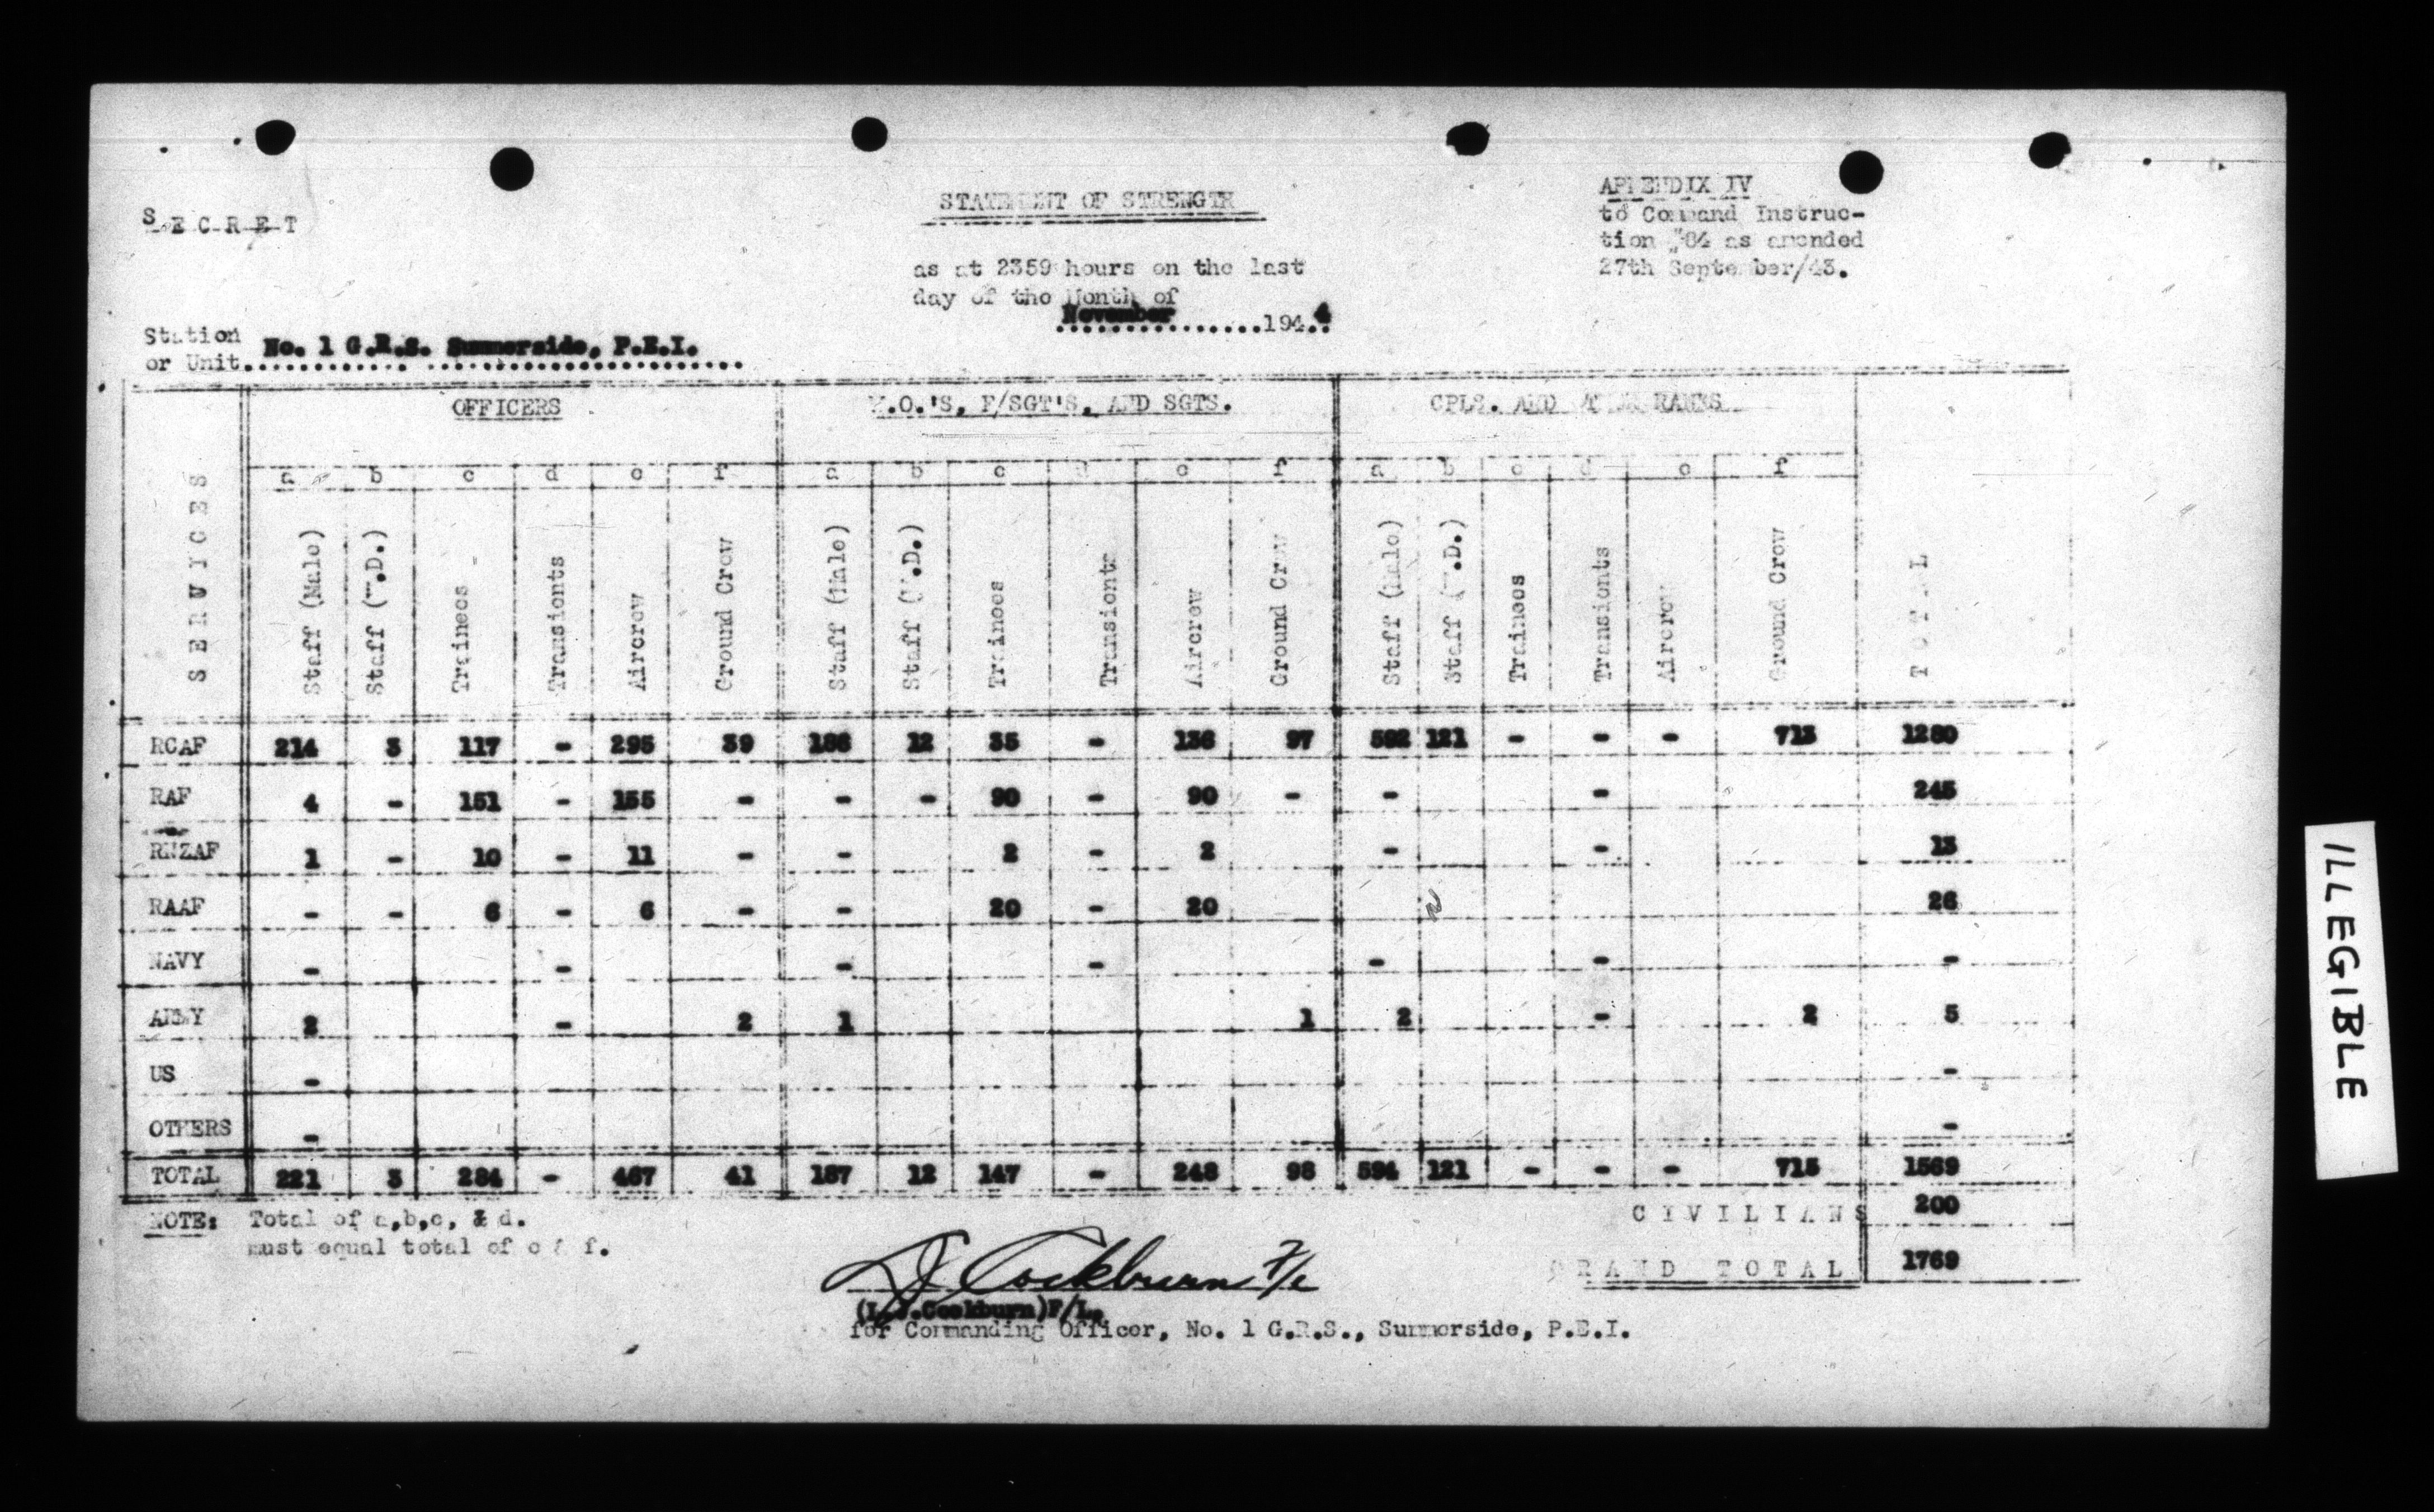 SECRET
STATEMENT OF STRENGTH
APPENDIX IV
to Command Instruc-
tion #84 as amended
27th September/43.
as at 2359 hours on the last
day of the Month of
November...............1944
Station
or Unit No. 1 G.R.S. Summerside, P.E.I.
SERVICES OFFICERS W.O.'S, F/SGT'S, AND SGTS. CPLS. AND RANKS TOTAL
a b c d e f a b c d e f a b c d e f
Staff (Male) Staff (W.D.) Trainees Transients Aircrew Ground Crew Staff (Male) Staff (W.D.) Trainees Transients Aircrew Ground Crew Staff (Male) Staff (W.D.) Trainees Transients Aircrew Ground Crew
RCAF 214 3 117 - 295 39 186 12 35 - 136 97 592 121 - - - 713 1280
RAF 4 - 151 - 155 - - - 90 - 90 - - - 245
RNZAF 1 - 10 - 11 - - 2 - 2 - - 13
RAAF - - 6 - 6 - - 20 - 20 26
NAVY - - - - - - -
ARMY 2 - 2 1 1 2 - 2 5
US - -
OTHERS - -
TOTAL 221 3 284 - 467 41 187 12 147 - 248 98 594 121 - - - 715 1569
NOTE: Total of a,b,c, & d.
must equal total of e & f.
CIVILIANS 200
GRAND TOTAL 1769
Cockburn F/L
(L.J.Cockburn)F/L.
for Commanding Officer, No. 1 G.R.S., Summerside, P.E.I.
ILLEGIBLE